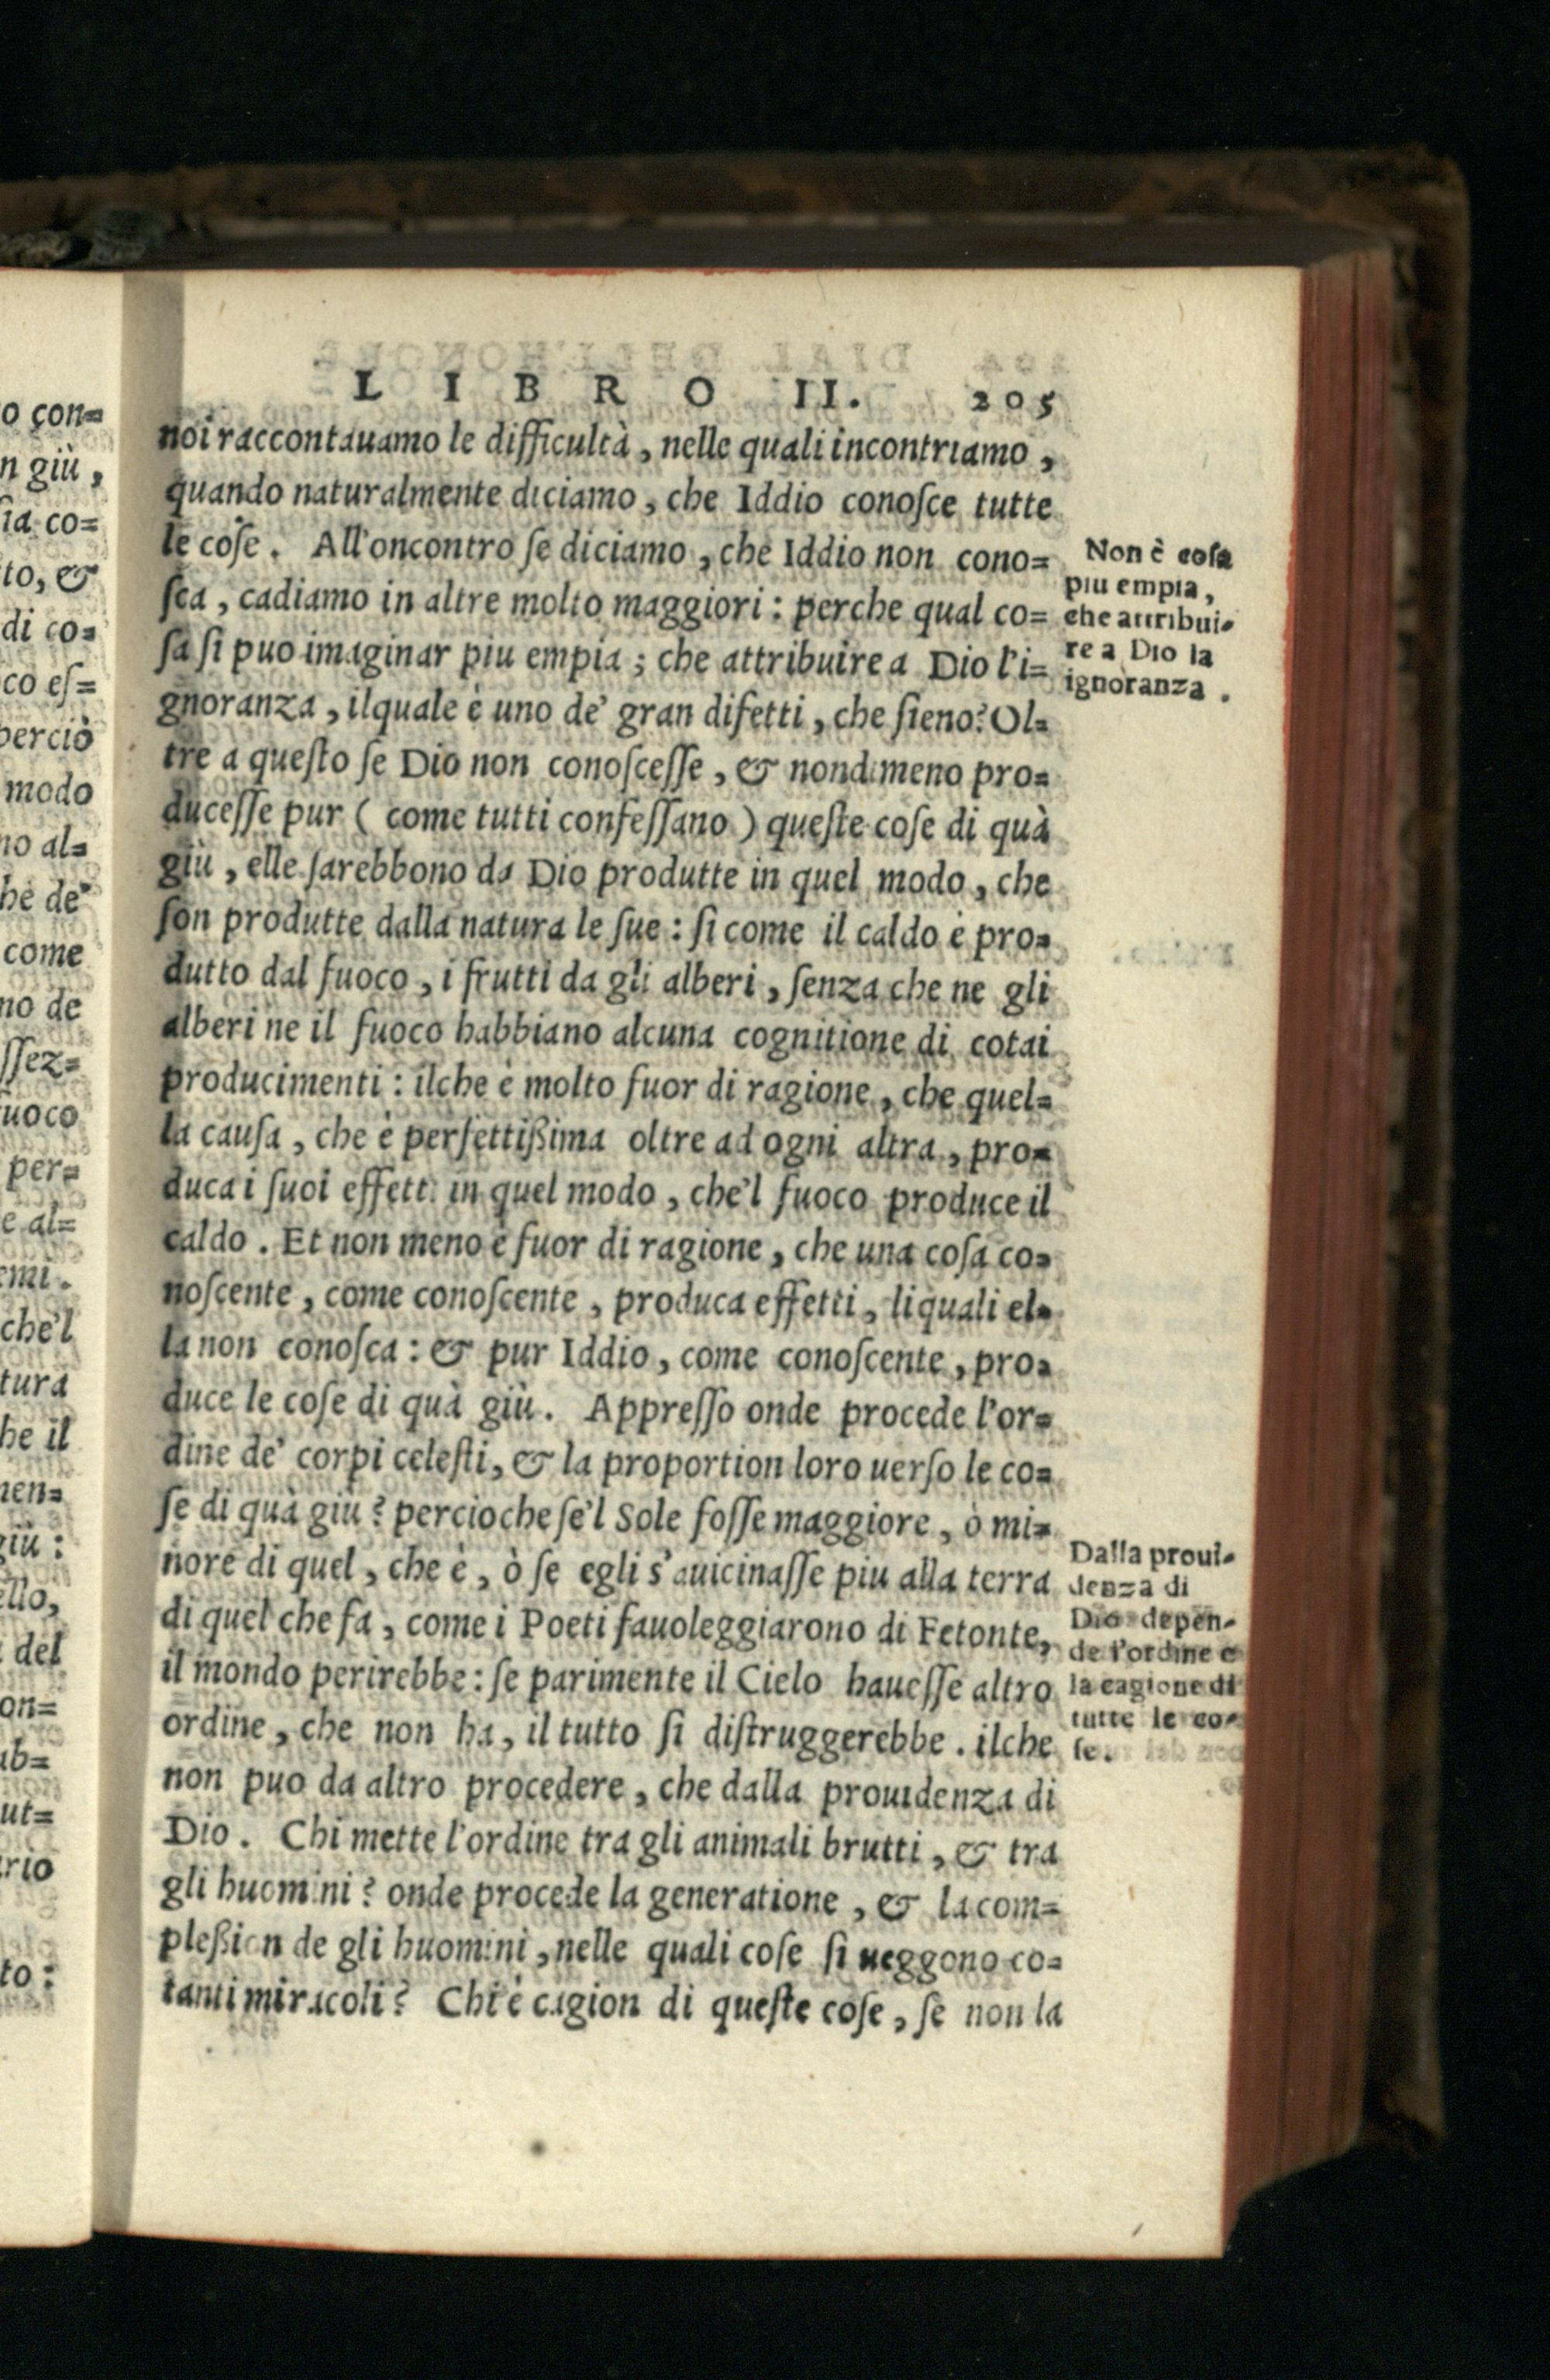 LIBRO II. 205
noi raccontauamo le difficultà, nelle quali incontriamo,
quando naturalmente diciamo, che Iddio conoſce tutte
le coſe. All'oncontro ſe diciamo, che Iddio non cono=
ſca, cadiamo in altre molto maggiori: perche qual co=
ſa ſi puo imaginar piu empia; che attribuire a Dio l'i=
gnoranza, ilquale è uno de' gran difetti, che ſieno? Ol=
tre a queſto ſe Dio non conoſceſſe, & nondimeno pro=
duceſſe pur ( come tutti confeſſano ) queſte coſe di quà
giù, elle ſarebbono da Dio produtte in quel modo, che
ſon produtte dalla natura le ſue: ſi come il caldo è pro=
dutto dal fuoco, i frutti da gli alberi, ſenza che ne gli
alberi ne il fuoco habbiano alcuna cognitione di cotai
producimenti: ilche è molto fuor di ragione, che quel=
la cauſa, che è perfettißima oltre ad ogni altra, pro=
duca i ſuoi effetti in quel modo, che'l fuoco produce il
caldo. Et non meno è fuor di ragione, che una coſa co=
noſcente, come conoſcente, produca effetti, liquali el=
la non conoſca: & pur Iddio, come conoſcente, pro=
duce le coſe di quà giù. Appreſſo onde procede l'or=
dine de' corpi celeſti, & la proportion loro uerſo le co=
ſe di quà giù? percioche ſe'l Sole foſſe maggiore, ò mi=
nore di quel, che è, ò ſe egli s'auicinaſſe piu alla terra
di quel che fa, come i Poeti fauoleggiarono di Fetonte,
il mondo perirebbe: ſe parimente il Cielo haueſſe altro
ordine, che non ha, il tutto ſi diſtruggerebbe. ilche
non puo da altro procedere, che dalla prouidenza di
Dio. Chi mette l'ordine tra gli animali brutti, & tra
gli huomini? onde procede la generatione, & la com=
pleßion de gli huomini, nelle quali coſe ſi ueggono co=
tanti miracoli? Chi è cagion di queſte coſe, ſe non la
Non è coſa
piu empia,
che attribui=
re a Dio la
ignoranza.
Dalla proui=
denza di
Dio depen=
de l'ordine e
la cagione di
tutte le co=
ſe.
o con=
n giù,
ſia co=
to, &
di co=
co eſ=
perciò
modo
no al=
he de'
come
no de
ſſez=
fuoco
per=
e al=
emi.
che'l
tura
he il
men=
giù:
ello,
del
on=
ab=
ut=
rio
to: